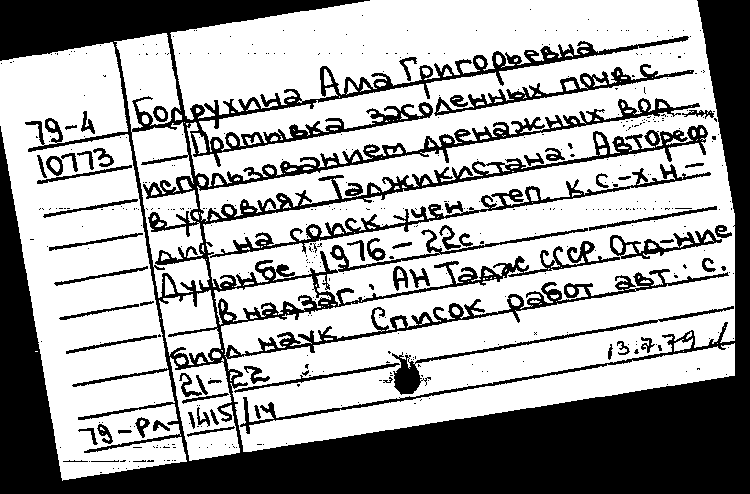 79-4 Бодрухина, Алла Григорьевна
10773 Промывка засоленных почв с
использованием дренажных вод
в условиях Таджикистана: Автореф.
дис. на соиск. учен. степ. к.с.-х.н.-
Душанбе, 1976.- 22с.
В надзаг.: АН Тадж ССР. Отд-ние
биол. наук. Список работ авт.: с.
21-22
13.7.79
79-Рл-1415/14